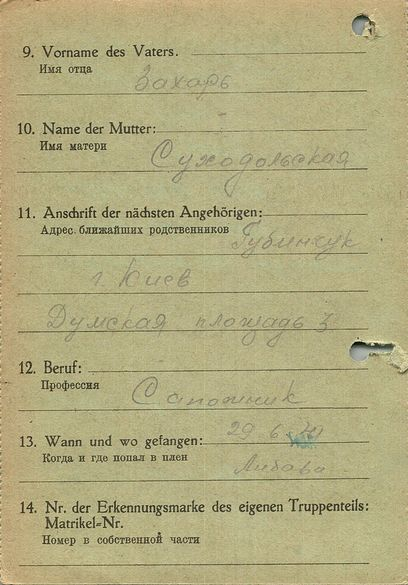 9. Vorname des Vaters.
Имя отца
Захарь
10. Name der Mutter:
Имя матери
Суходольская
11. Anschrift der nächsten Angehörigen:
Адрес ближайших родственников
Губинчук
г. Киев
Думская площадь 3
12. Beruf:
Профессия
Сапожник
13. Wann und wo gefangen:
29 6 41
Когда и где попал в плен
Либава
14. Nr. der Erkennungsmarke des eigenen Truppenteils:
Matrikel=Nr.
Номер в собственной части